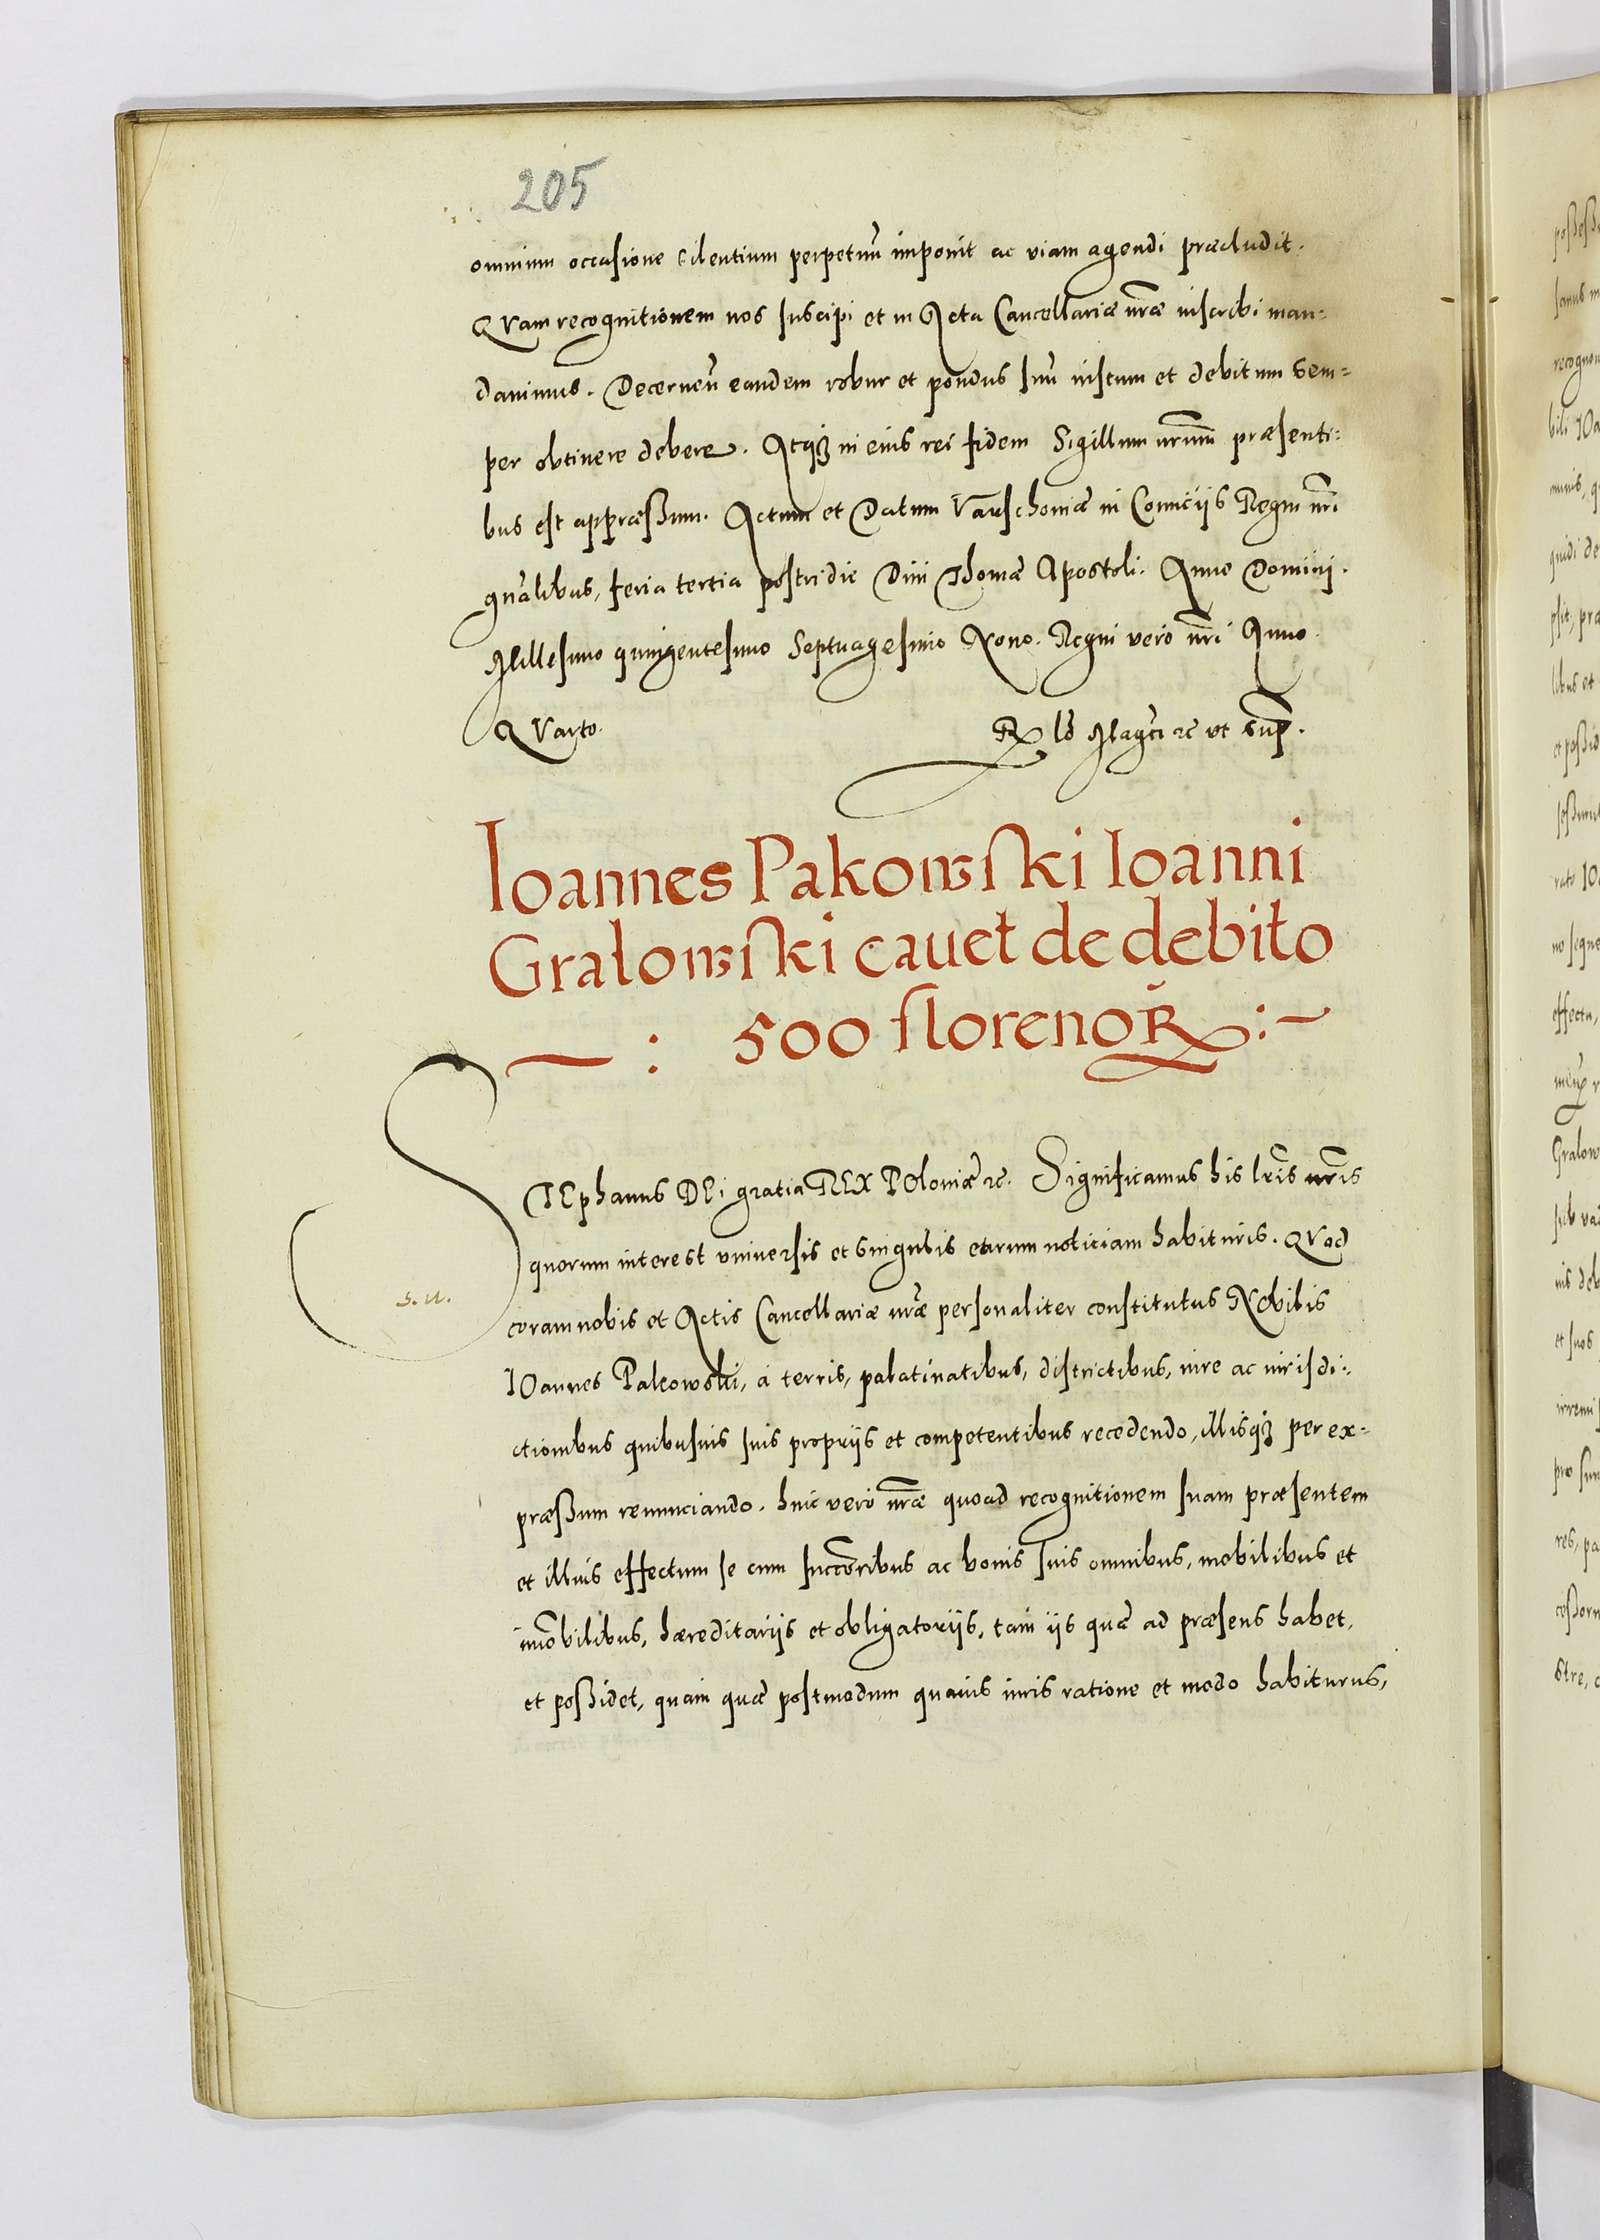 205
omnium occasione silentium perpetuũ imponit ac viam agendi præcludit.
QVam recognitionem nos suscipi et in Acta Cancellariæ nr̃æ inscribi man-
davimus. Decerneñ eandem robur et pondus suũ iustum et debitum sem-
per obtinere debere. Atqȝ in eius rei fidem Sigillum nr̃um præsenti-
bus est appræßum. Actum et Datum Varschoviæ in Comicijs Regni nr̃i
gnãlibus, feria tertia postridie Diui Thomæ Apostoli. Anno Domini.
Millesimo quingentesimo Septuagesimo Nono. Regni vero nr̃i Anno
QVarto. Rñ Magci ꝛc ut sup̃.
Ioannes Pakowski Ioanni
Gralowski cauet de debito
500 florenoꝝ :~
STEphanus DEi gratia REX POloniæ ꝛc. Significamus his lr̃is nr̃is
quorum interest vniuersis et singulis earum noticiam habituris. QVod
coram nobis et Actis Cancellariæ nr̃æ personaliter constitutus NObilis
IOannes Pakowski, á terris, palatinatibus, districtibus, iure ac iurisdi-
ctionibus quibusuis suis proprijs et competentibus recedendo, illisqȝ per ex-
præßum renunciando. huic veró nr̃æ quoad recognitionem suam præsentem
et illius effectum se cum succoribus ac bonis suis omnibus, mobilibus et
imõbilibus, hæreditarijs et obligatorijs, tam ijs quæ ad præsens habet,
et poßidet, quam quæ postmodum quauis iuris ratione et modo habiturus,
S. U.